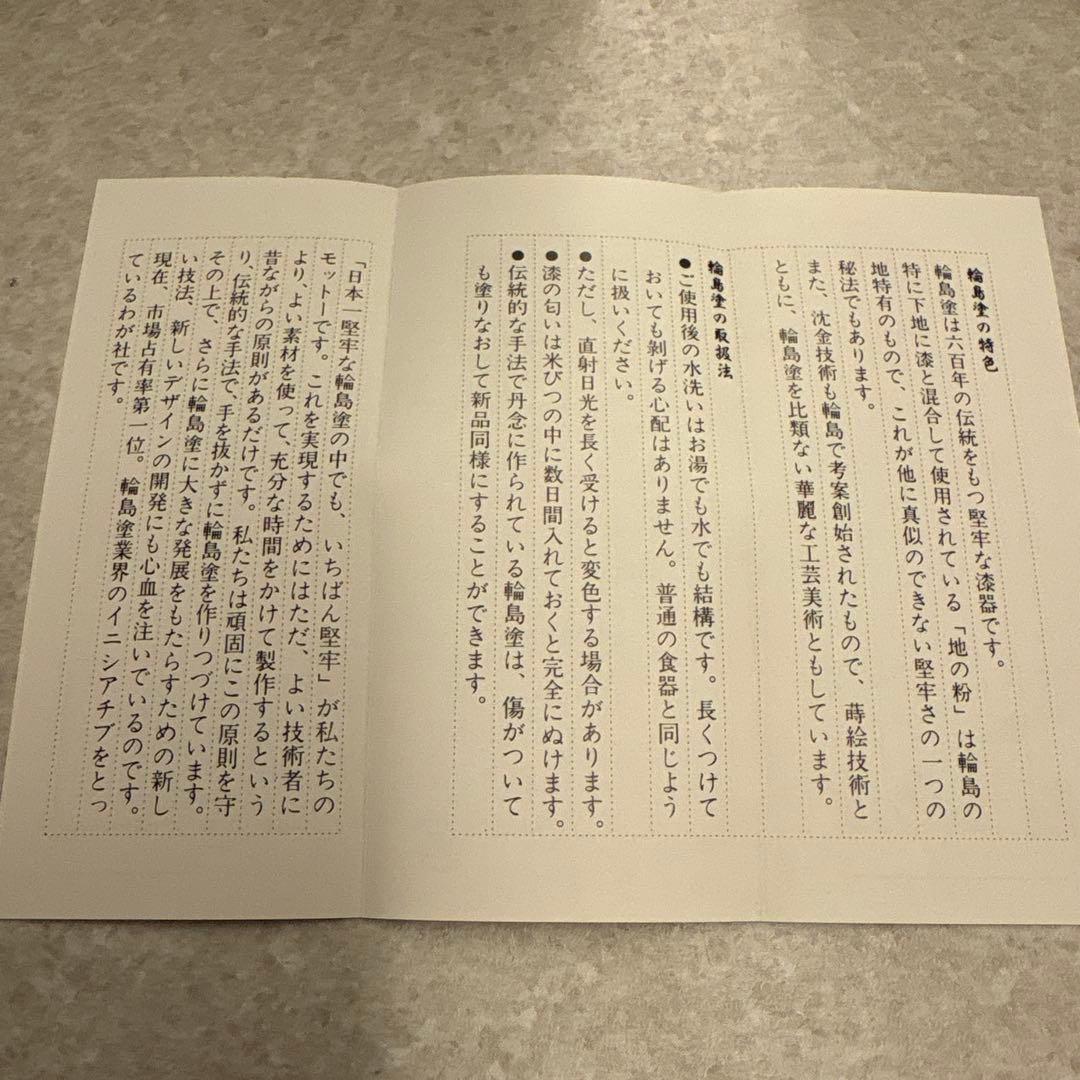 輪島塗の特色
輪島塗は六百年の伝統をもつ堅牢な漆器です。
特に下地に漆と混合して使用されている「地の粉」は輪島の
地特有のもので、これが他に真似のできない堅牢さの一つの
秘法でもあります。
また、沈金技術も輪島で考案創始されたもので、蒔絵技術と
ともに、輪島塗を比類ない華麗な工芸美術ともしています。
輪島塗の取扱法
●ご使用後の水洗いはお湯でも水でも結構です。長くつけて
おいても剝げる心配はありません。普通の食器と同じよう
に扱いください。
●ただし、直射日光を長く受けると変色する場合があります。
●漆の匂いは米びつの中に数日間入れておくと完全にぬけます。
●伝統的な手法で丹念に作られている輪島塗は、傷がついて
も塗りなおして新品同様にすることができます。
「日本一堅牢な輪島塗の中でも、いちばん堅牢」が私たちの
モットーです。これを実現するためにはただ、よい技術者に
より、よい素材を使って、充分な時間をかけて製作するという
昔ながらの原則があるだけです。私たちは頑固にこの原則を守
り、伝統的な手法で、手を抜かずに輪島塗を作りつづけています。
その上で、さらに輪島塗に大きな発展をもたらすための新し
い技法、新しいデザインの開発にも心血を注いでいるのです。
現在、市場占有率第一位。輪島塗業界のイニシアチブをとっ
ているわが社です。